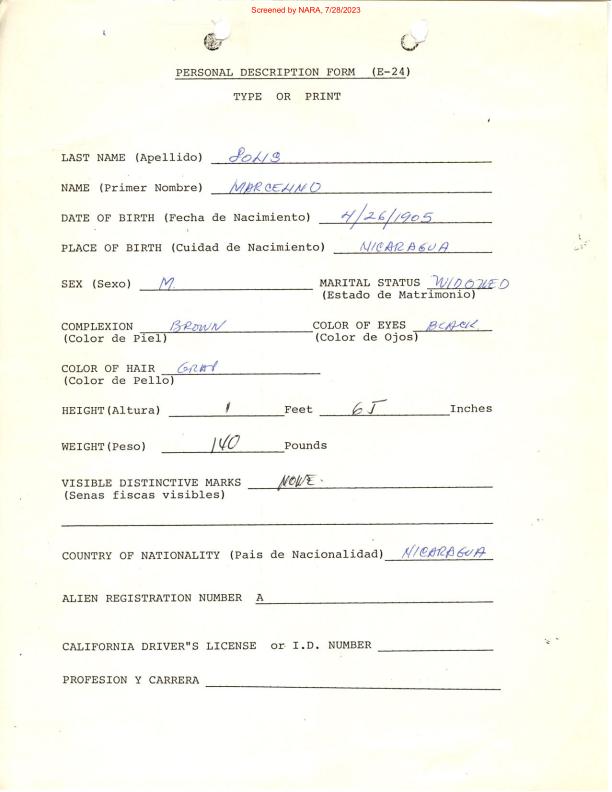 Screened by NARA, 7/28/2023
PERSONAL DESCRIPTION FORM (E-24)
TYPE OR PRINT
LAST NAME (Apellido) SOLIS
NAME (Primer Nombre) MARCELINO
DATE OF BIRTH (Fecha de Nacimiento) 4/26/1905
PLACE OF BIRTH (Cuidad de Nacimiento) NICARAGUA
SEX (Sexo) M. MARITAL STATUS WIDOWED
(Estado de Matrimonio)
COMPLEXION BROWN COLOR OF EYES BLACK
(Color de Piel) (Color de Ojos)
COLOR OF HAIR GRAY
(Color de Pello)
HEIGHT(Altura) Feet 65 Inches
WEIGHT(Peso) 140 Pounds
VISIBLE DISTINCTIVE MARKS NONE.
(Senas fiscas visibles)
COUNTRY OF NATIONALITY (Pais de Nacionalidad) NICARAGUA
ALIEN REGISTRATION NUMBER A
CALIFORNIA DRIVER"S LICENSE or I.D. NUMBER
PROFESION Y CARRERA